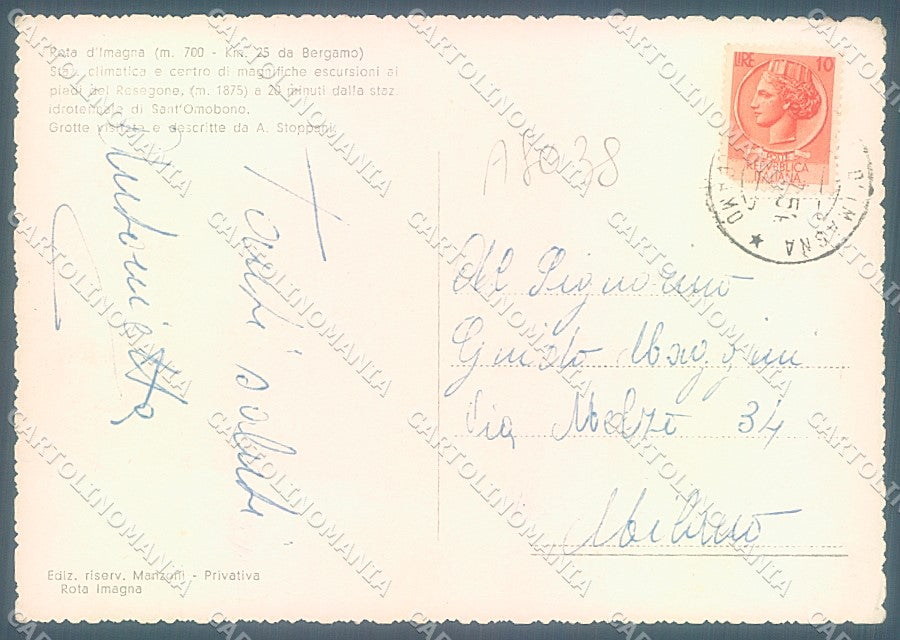 Rota d'Imagna (m. 700 - Km. 25 da Bergamo)
Staz. climatica e centro di magnifiche escursioni ai
piedi del Resegone, (m. 1875) a 20 minuti dalla staz.
idrotermale di Sant'Omobono.
Grotte visitate e descritte da A. Stoppani.
Tanti saluti
A8038
LIRE 10
REPVBBLICA
ITALIANA
D'IMAGNA
Al Signorino
Maggioni
Via Melzo 34
Milano
Ediz. riserv. Manzoni - Privativa
Rota Imagna
CARTOLINOMANIA